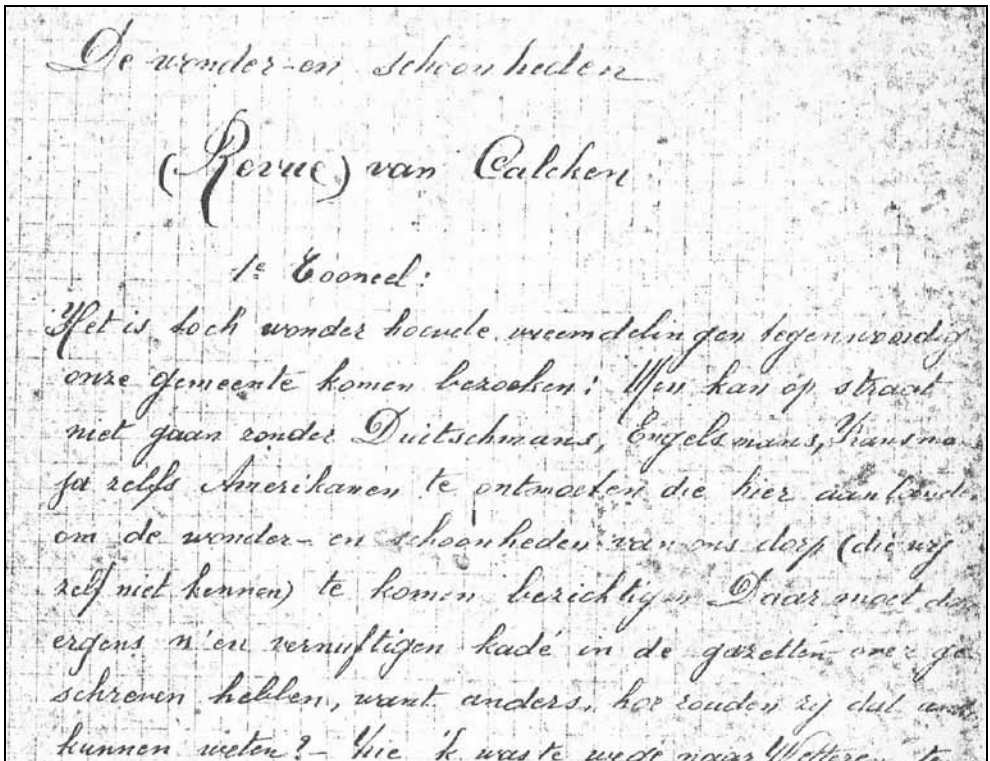 De wonder-en schoonheden
(Revue) van Calcken
1e Tooneel:
Het is toch wonder hoevele vreemdelingen tegenwoordig
onze gemeente komen bezoeken: Men kan op straat
niet gaan zonder Duitschmans, Engelsmans, Fransma
ja zelfs Amerikanen te ontmoeten die hier aanlande
om de wonder- en schoonheden van ons dorp (die wij
zelf niet kennen) te komen bezichtigen Daar moet
ergens n'en vernuftigen kadé in de gazetten over ge
schreven hebben, want anders, hoe zouden zij dat
kunnen weten? - Hie 'k was te wege naar Wetteren te